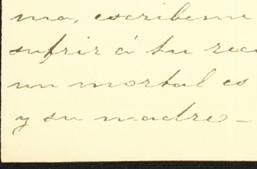 ma, escribeme
sufrir á tu rec
un mortal es
y su madre—